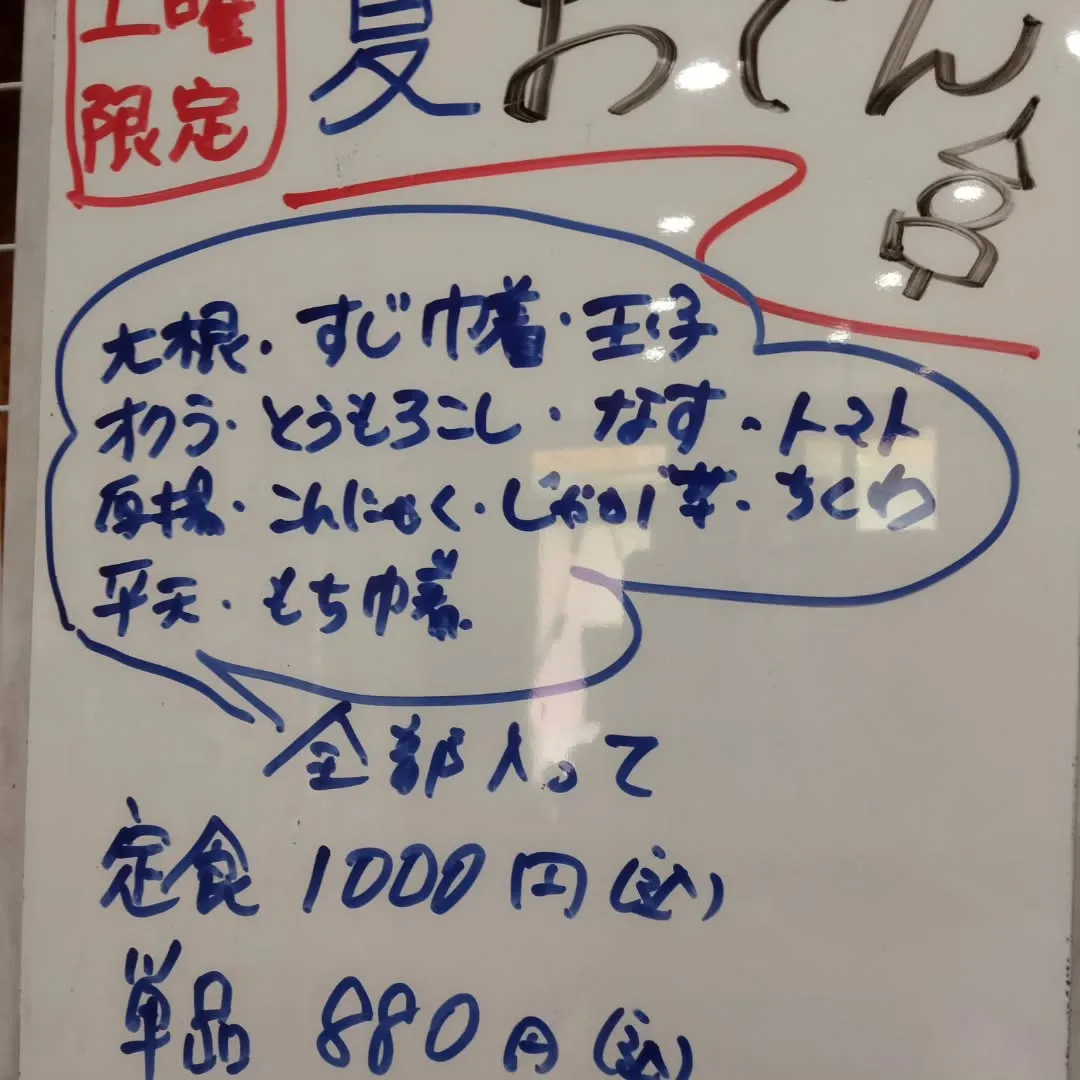 土曜
限定
夏おでん
大根・すじ巾着・玉子
オクラ・とうもろこし・なす・トマト
厚揚・こんにゃく・じゃが芋・ちくわ
平天・もち巾着
全部入って
定食 1000円(込)
単品 880円(込)